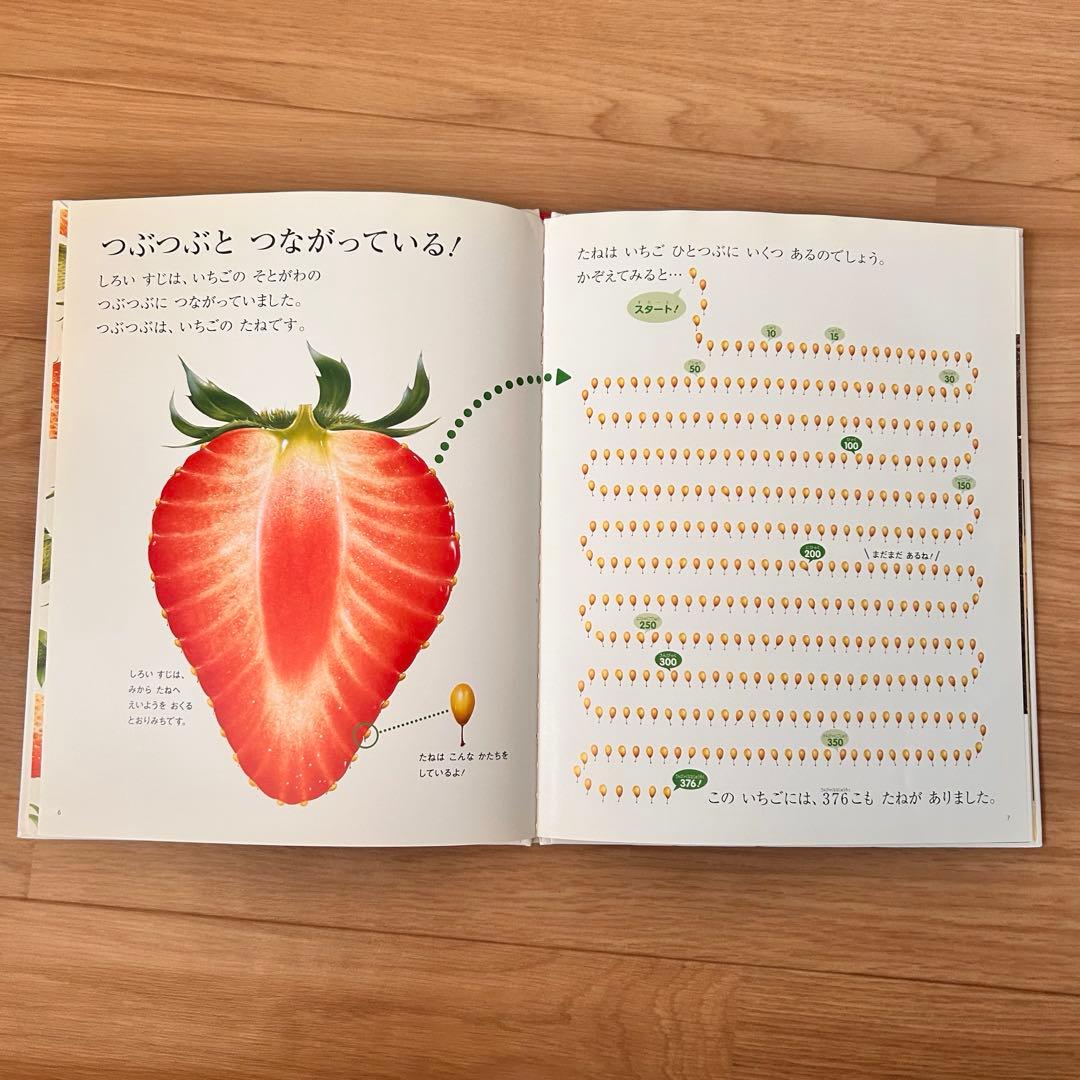 つぶつぶと つながっている!
しろい すじは、いちごの そとがわの
つぶつぶに つながっていました。
つぶつぶは、いちごの たねです。
しろい すじは、
みから たねへ
えいようを おくる
とおりみちです。
たねは こんな かたちを
しているよ!
6
たねは いちご ひとつぶに いくつ あるのでしょう。
かぞえてみると…
スタート!
10
15
50
30
100
150
200
まだまだ あるね!
250
300
350
376!
この いちごには、376こも たねが ありました。
7